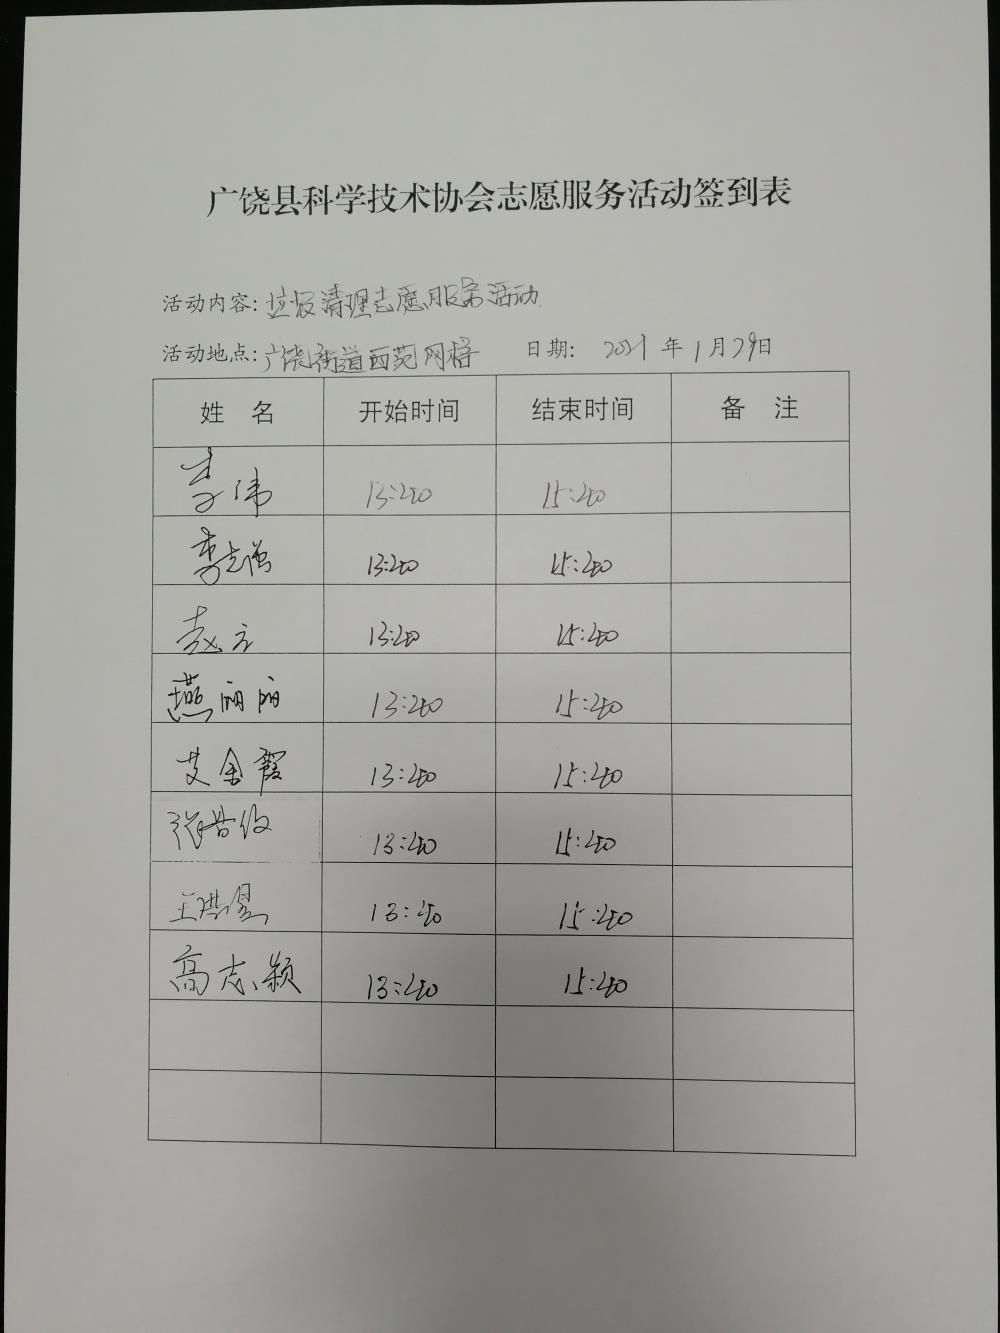 广饶县科学技术协会志愿服务活动签到表
活动内容: 垃圾清理志愿服务活动
活动地点: 广饶街道西苑网格 日期: 2021 年 1 月 29 日
姓 名 开始时间 结束时间 备 注
李伟 13:40 15:40
李志强 13:40 15:40
赵立 13:40 15:40
燕丽丽 13:40 15:40
艾金霞 13:40 15:40
13:40 15:40
王洪 13:40 15:40
高志颖 13:40 15:40